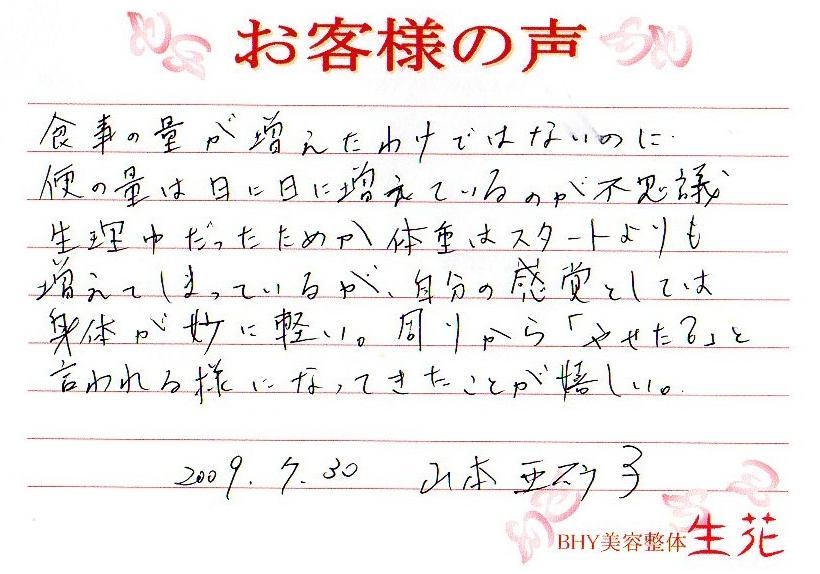 お客様の声
食事の量が増えたわけではないのに
便の量は日に日に増えているのが不思議
生理中だったためか体重はスタートよりも
増えてしまっているが、自分の感覚としては
身体が妙に軽い。周りから「やせた?」と
言われる様になってきたことが嬉しい。
2009.7.30 山本 亜砂子
BHY美容整体 生花